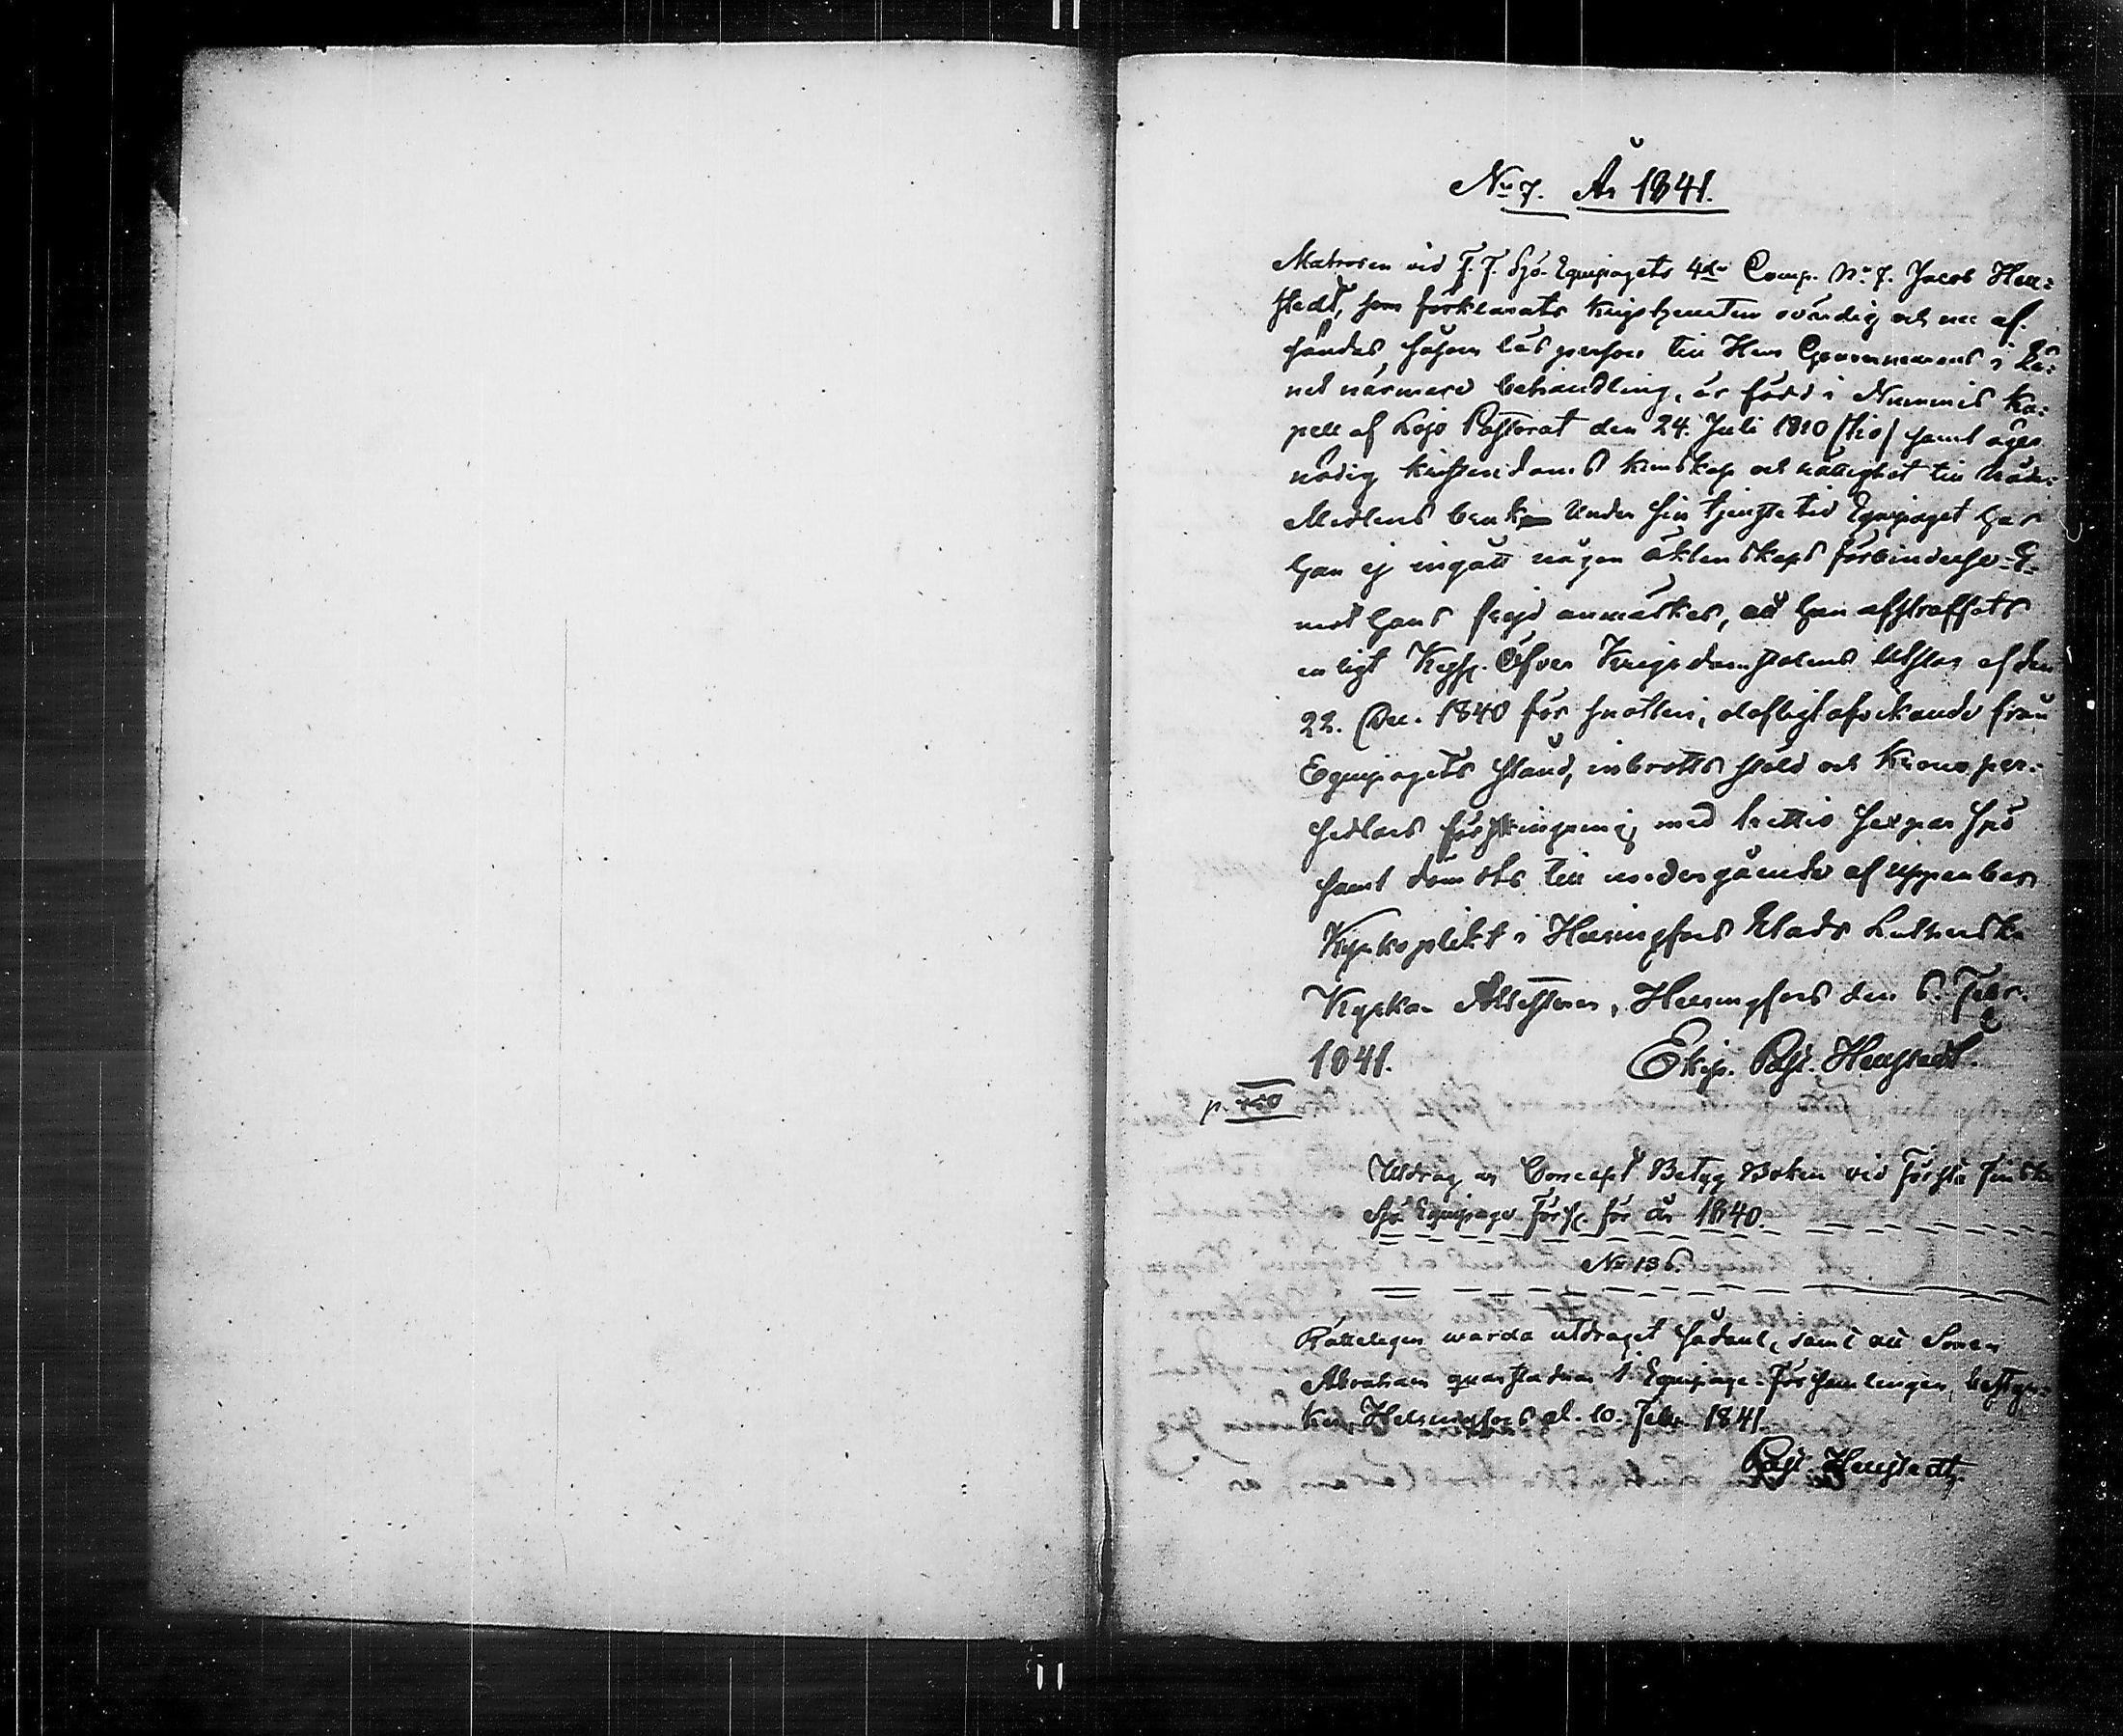 No 7. År 1841.
Matrosen vid F. F. Sjö-Equipagets 4de Comp. No. 7. Jacob Hell=
stedt, som förklarats krigstjensten ovärdig och nu af-
sändes såsom lös person till Herr Gouverneurens i Lä=
net närmare behandling, är född i Nummis Ka=
pell af Lojo Pastorat den 24. Juli 1810 /tio/ samt äger
nödig kristendoms kunskap och rättighet till Nåde=
Medlens bruk Under sin tjenstetid Equipaget har
han ej ingått någon äktenskaps förbindelse.
mot hans frejd anmärkes, att han afstraffats
enligt Kejs. Öfver Krigsdomstolens Utslag af den
22. Dec. 1840 för snatteri, olofligt afvikande från
Equipagets stånd, inbrotts stöld och Krono per-
sedlars förskingring med trettio sex par spö
samt dömdts till undergående af uppenbar
Kyrkoplikt i Helsingfors Stads Lutherska
Kyrka Attesteras, Helsingfors den 6. Febr.
1841. Ekip. Past. Hellstedt.
p.
Utdrag ur Concept Betyg Boken vid Första Finska
Sjö Equipage Förs. för år 1840
No 136.
Rätteligen warda utdraget sådant, samt att Sonen
Abraham quarstadnar i Equipage-Församlingen, bestyr=
kes Helsingfors d. 10. Febr. 1841.
Past. Hellstedt.